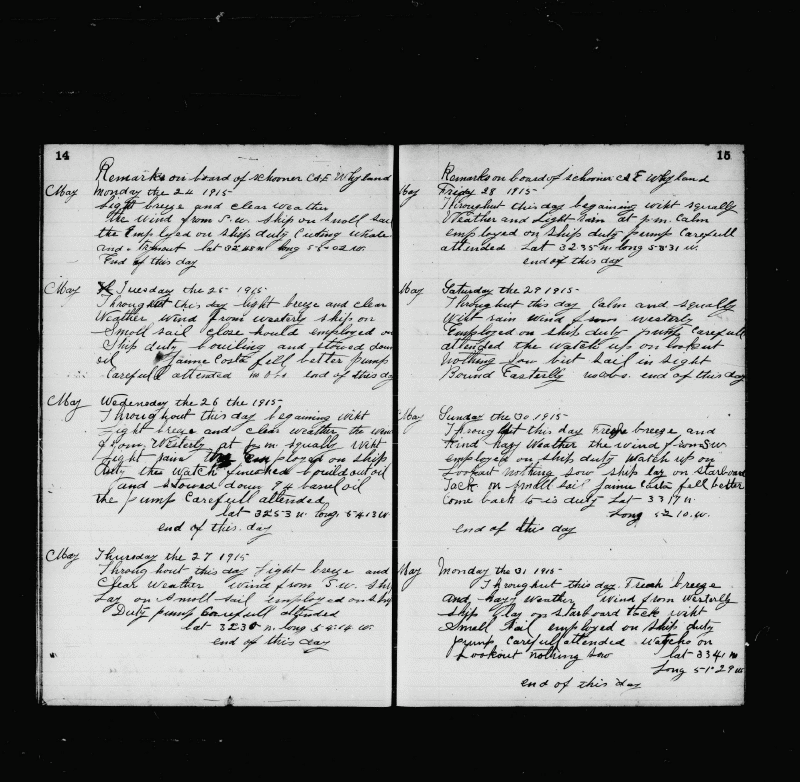 14
Remarks on board of schooner A. E. Whyland
May Monday the 24 1915
Light breze and clear weather
the wind from S.W. ship on small sail
the Employed on ship duty Cuting whale
and lat 32 45 N long 55-02 W.
End of this day
May Tuesday the 25 1915
Throughout this day light breeze and clear
Weather wind from westerly ship on
Small sail close houled employed on
Ship duty bouiling and stowed down
oil Jaime Costa fell better pump
Carefull attended no obs end of this day
May Wedenesday the 26 the 1915
Throughout this day begaining wiht
Light breze and clear weather the wind
from Westerly at p.m. squally wiht
Light rain employed on ship
duty the watch finiched bouild out oil
and stowed down 94 barrel oil
the pump Carefull attended
lat 32 53 N. long. 54 13 W.
end of this day
May Thursday the 27 1915
Throughout this day light breze and
Clear weather wind from S.W. ship
Lay on small sail employed on ship
Duty pump Carefull attended
lat 32 30 N. long 54.14 W.
end of this day
15
Remarks on board of schooner A E Whyland
May Friday 28 1915
Throughout this day begaining wiht squally
Weather and Light rain at p.m. Calm
employed on ship duty pump Carefull
attended Lat 32 35 N. long 53 31 W.
end of this day
May Saturday the 29 1915
Throughout this day Calm and squally
Wiht rain wind from westerly
Employed on ship duty pump Carefull
attended the watch up on lookout
Nothing sow but sail in sight
Bound Easterlly no obs. end of this day
May Sunday the 30 1915
Throughout this day Fresh breeze, and
Kind hazy Weather the wind from SW
employed on ship duty Watch up on
Lookout nothing sow ship lay on starboard
Tack on small sail Jaime Costa fell better
Come back to is duty Lat 33 17 N.
Long 52 10. W.
end of this day
May Monday the 31 1915
Throughout this day. Fresh breeze
and hazy Weather wind from westerly
ship lay on starboard tack wiht
Small sail employed on ship duty
pump Carefull attended Watchs on
Lookout nothing sow lat 33 41 N
Long 51° 29 W
end of this day